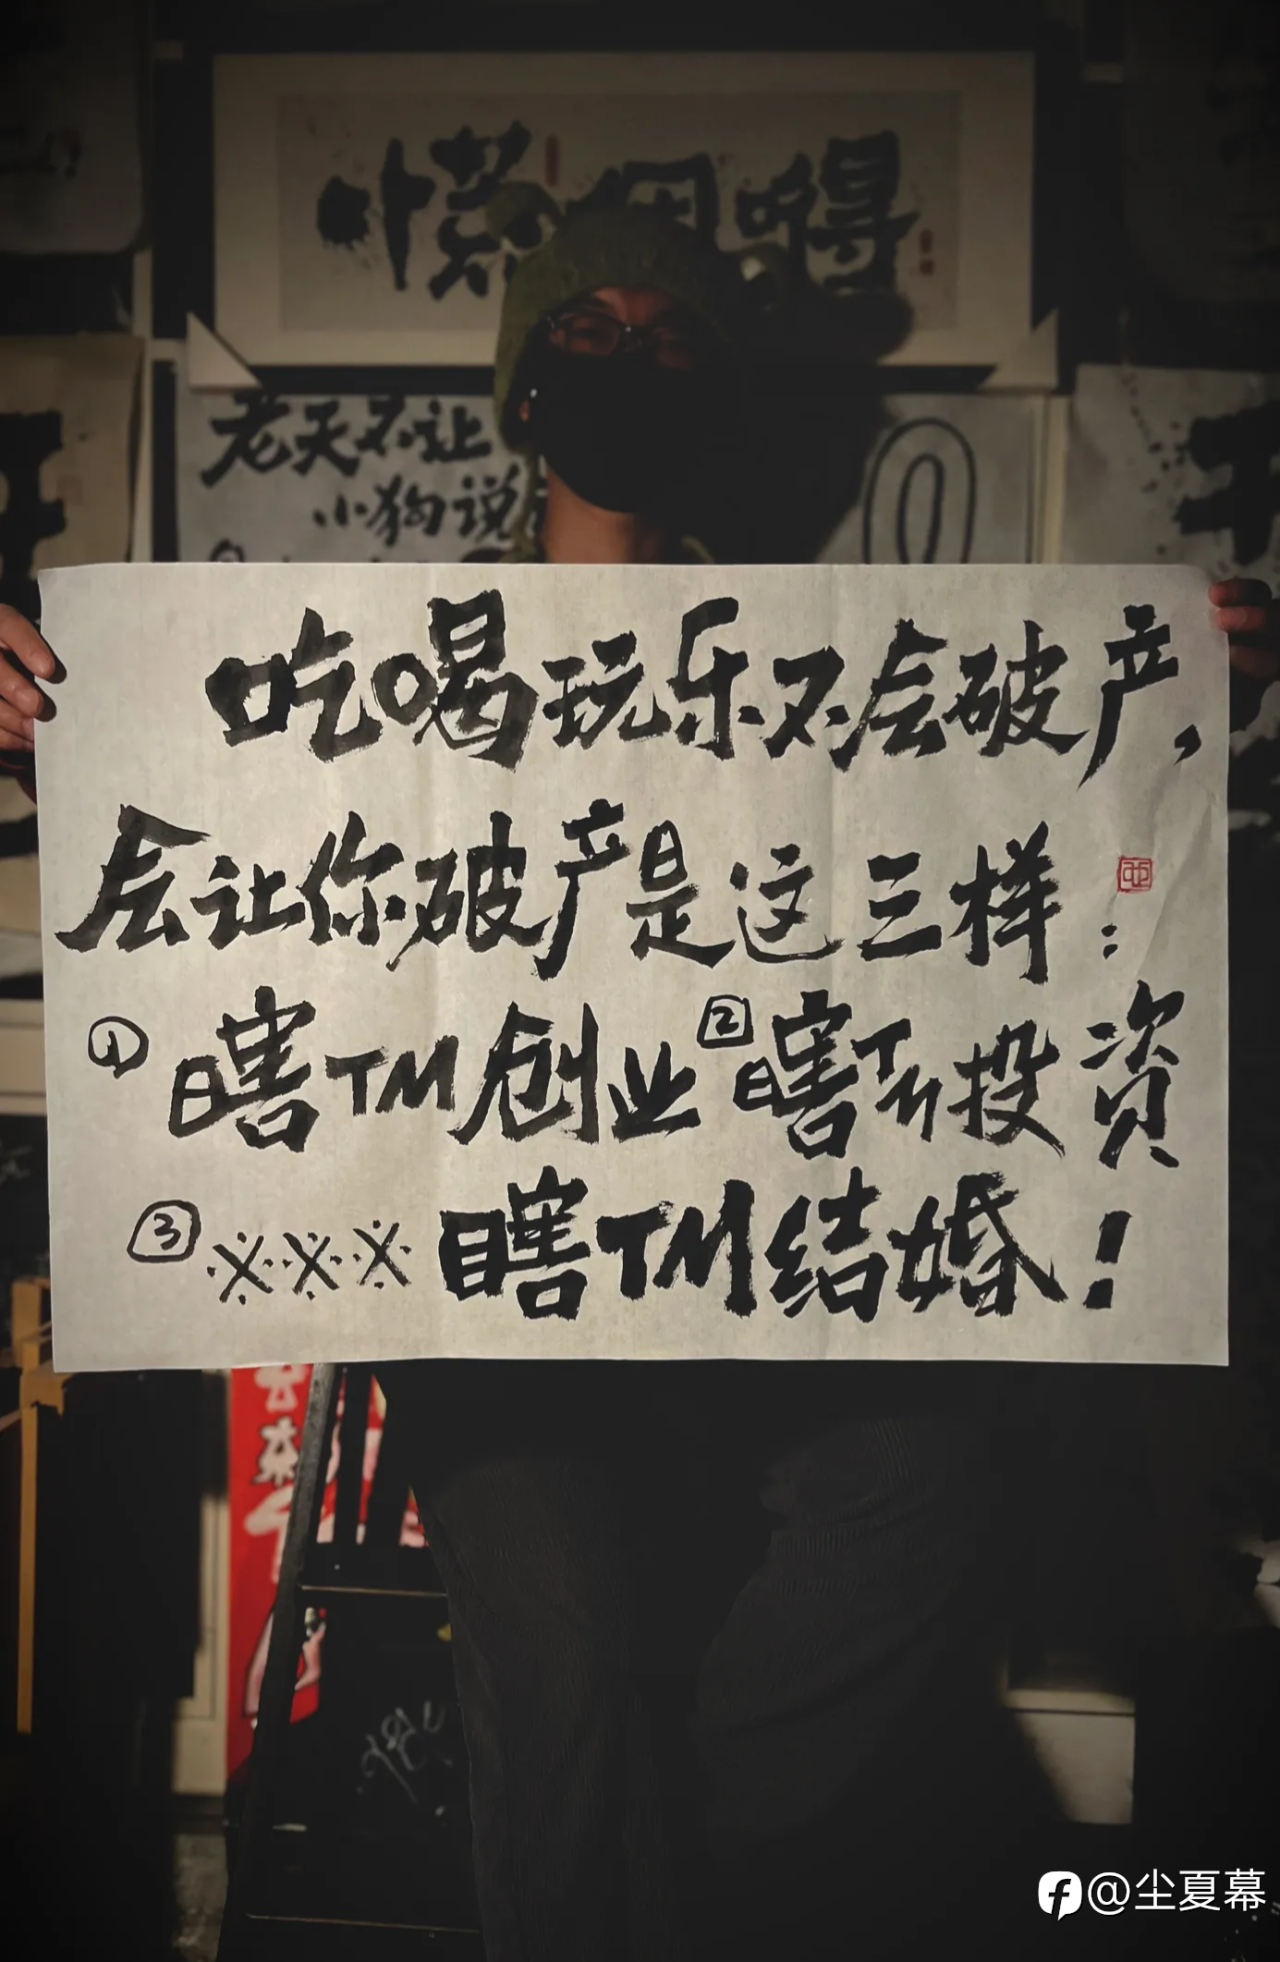 老天不让
小狗说
吃喝玩乐不会破产,
会让你破产是这三样:
①瞎TM创业②瞎TM投资
③※※※瞎TM结婚!
@尘夏幕